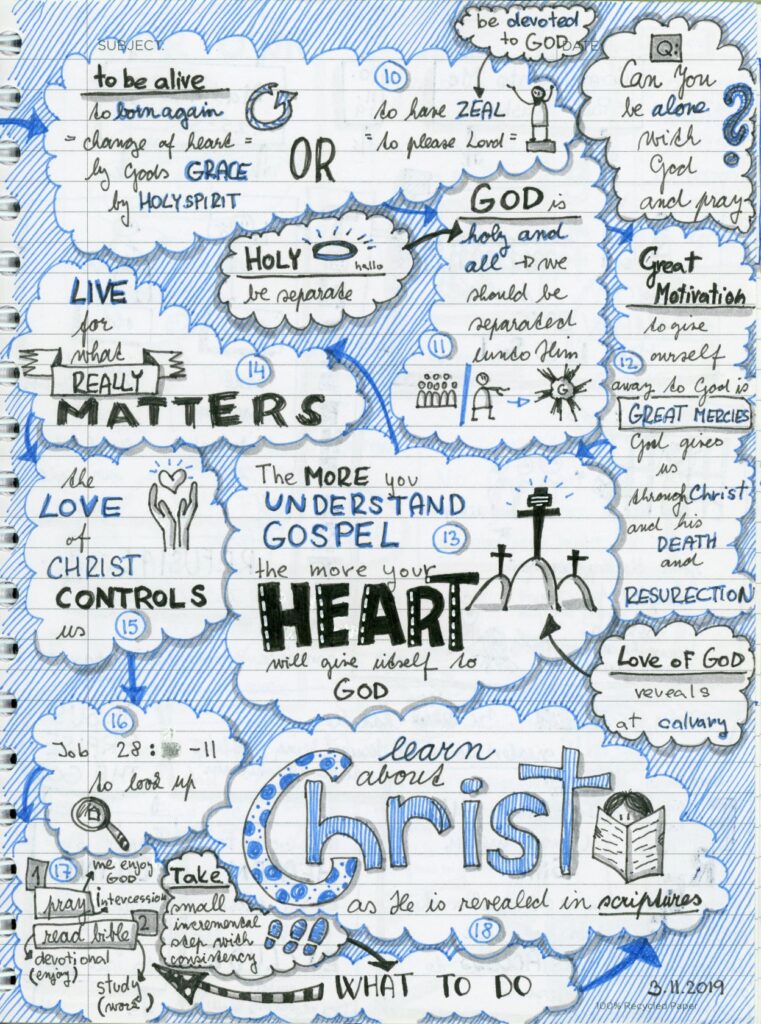 SUBJECT:
DATE:
be devoted
to GOD
10
to be alive
to born again
= change of heart =
by Gods GRACE
by HOLYSPIRIT
OR
to have ZEAL
= to please Lord =
Q:
Can You
be alone
with
God
and pray
?
GOD is
holy and
all → we
should be
separated
unto Him
11
HOLY
hallo
be separate
Great
Motivation
to give
ourself
12
away to God is
GREAT MERCIES
God gives
us
through Christ
and his
DEATH
and
RESURECTION
The MORE you
UNDERSTAND
GOSPEL
13
the more your
HEART
will give itself to
GOD
Love of GOD
reveals
at calvary
LIVE
for
what
REALLY
14
MATTERS
the
LOVE
of
CHRIST
CONTROLS
us
15
16
Job 28: -11
to look up
17
1
me enjoy
GOD
pray
intercession
2
read bible
devotional
(enjoy)
study
(work)
Take
small
incremental
step with
consistency
WHAT TO DO
learn
about
Christ
as He is revealed in scriptures
18
3.11.2019
100% Recycled Paper